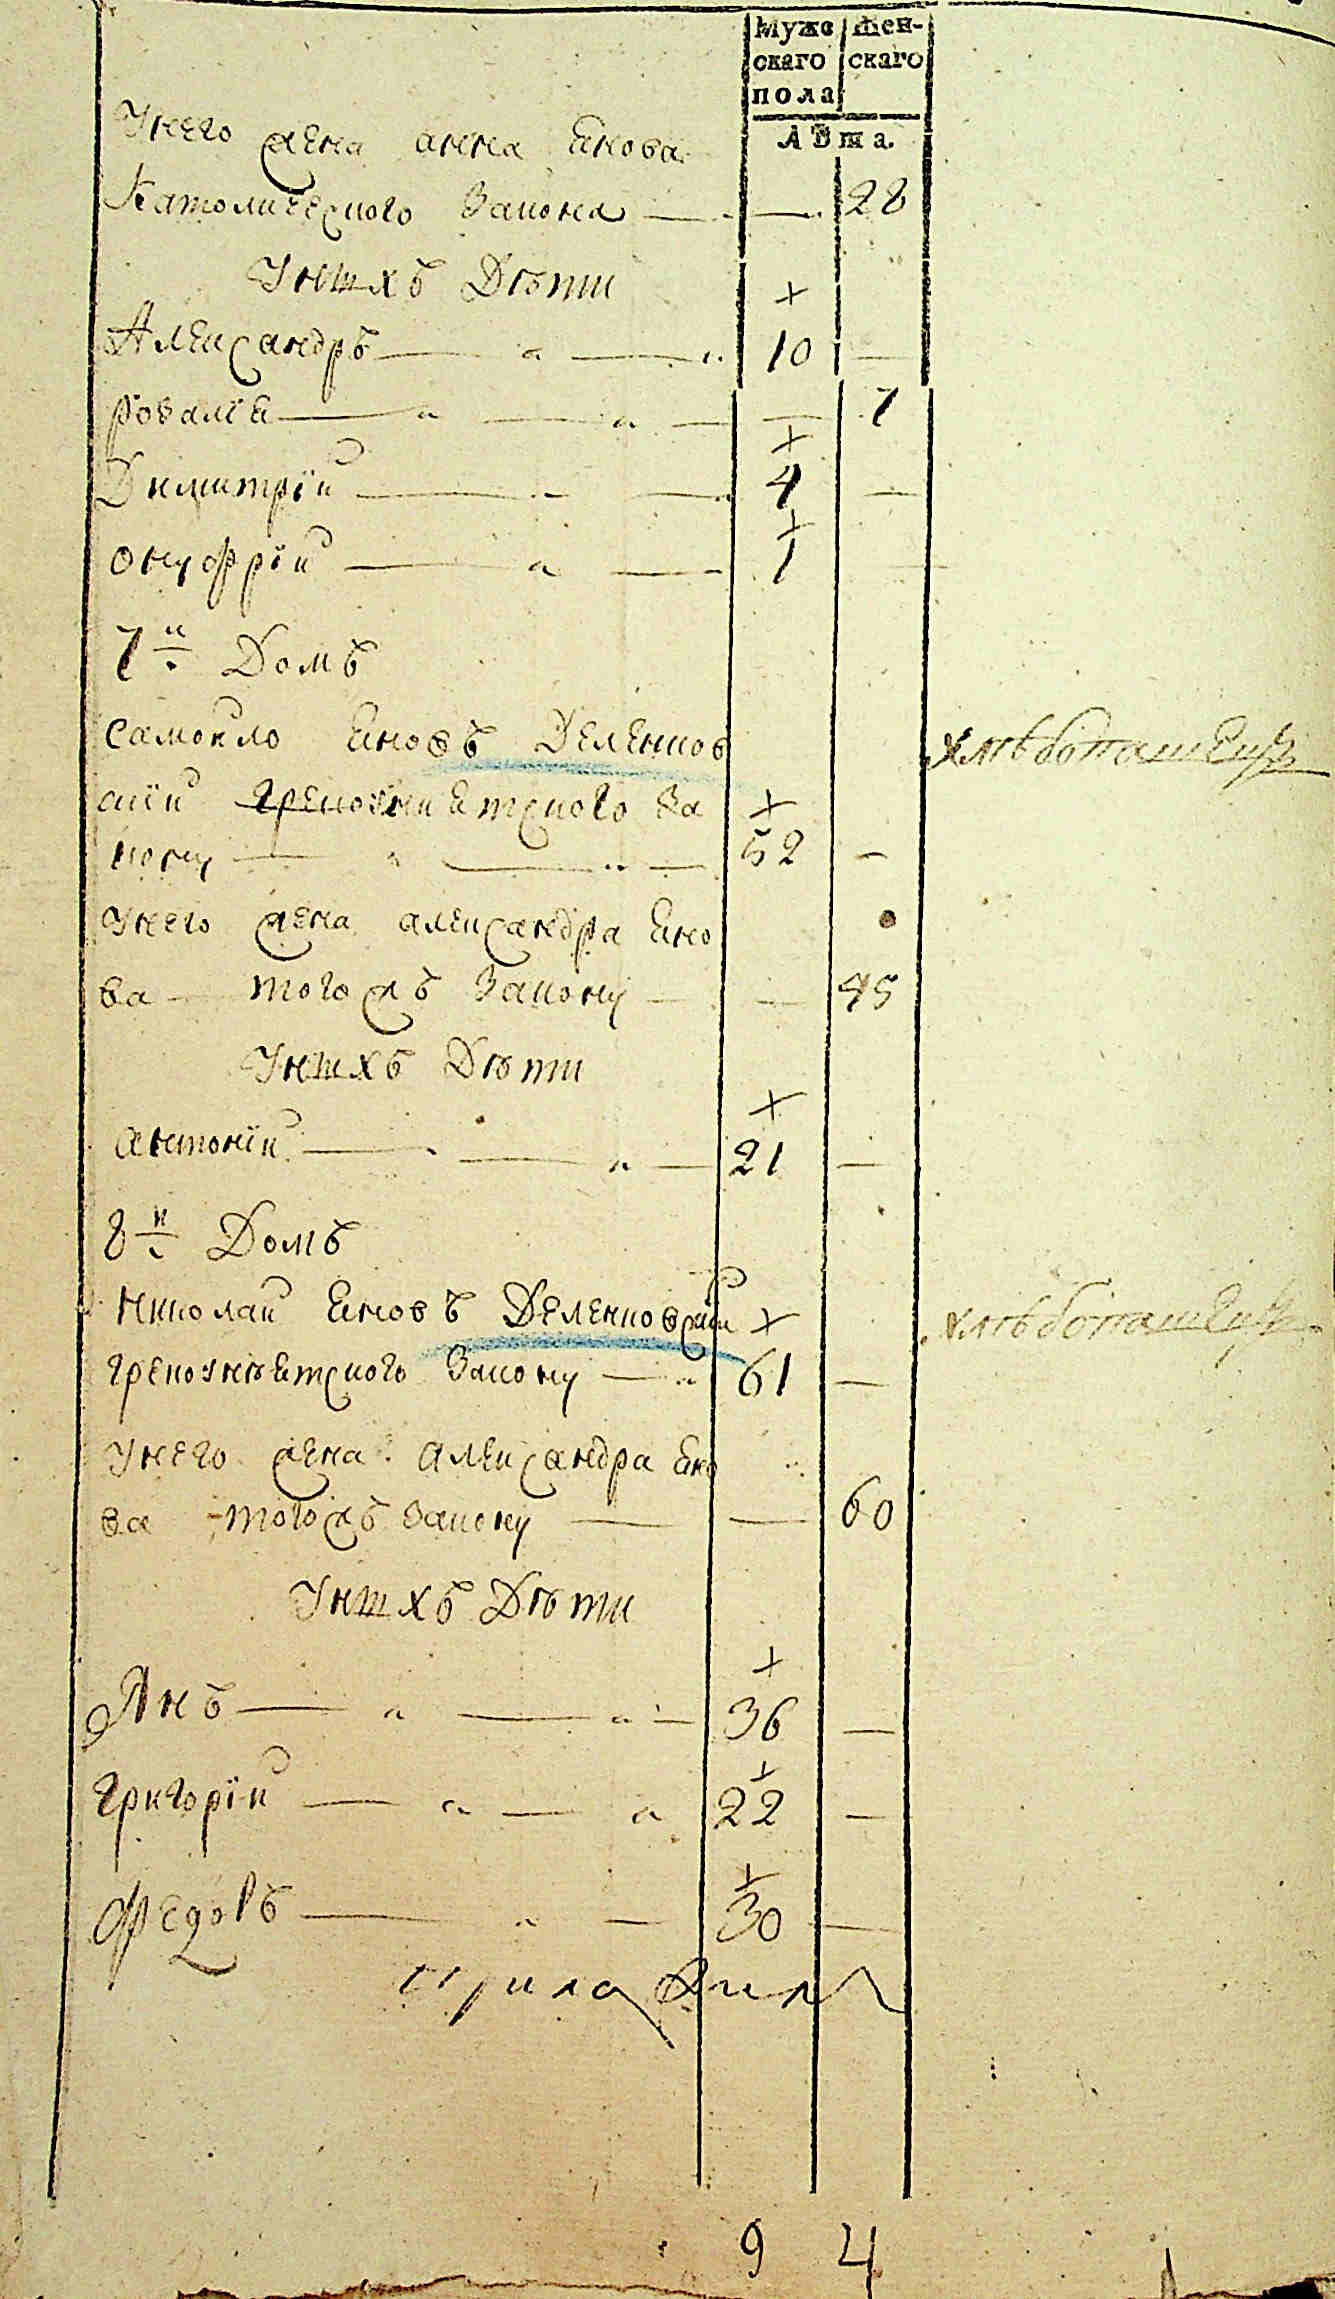 Муже скаго пола
Жен- скаго
Лѣта.
Унего жена анна Янова
Католического Закона — — 28
Унихъ Дѣти
Александръ — 10 —
розалїя — — 7
Димитрїй — 4 —
онуфрїй — 1 —
7й Домъ
самойло Яновъ Деленков
скїй грекоуниятского За
кону — 52 —
унего жена александра Яно
ва тогожъ Закону — — 45
Унихъ Дѣти
антонїй — 21 —
8й Домъ
Николай Яновъ Деленковскїй
грекоунѣятского Закону — 61 —
унего жена александра Яно
ва тогожъ Закону — — 60
Унихъ Дѣти
Янъ — 36 —
григорїй — 22 —
Федоръ — 30 —
хлѣбопашецъ
хлѣбопашецъ
9 4